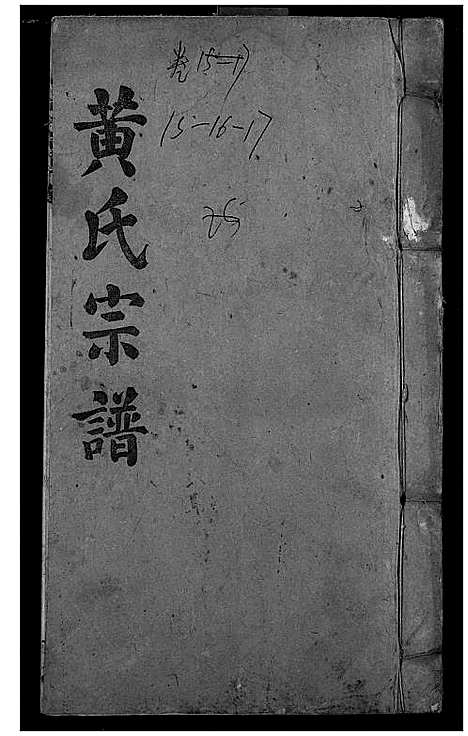 黄氏宗譜
卷15-17
15-16-17